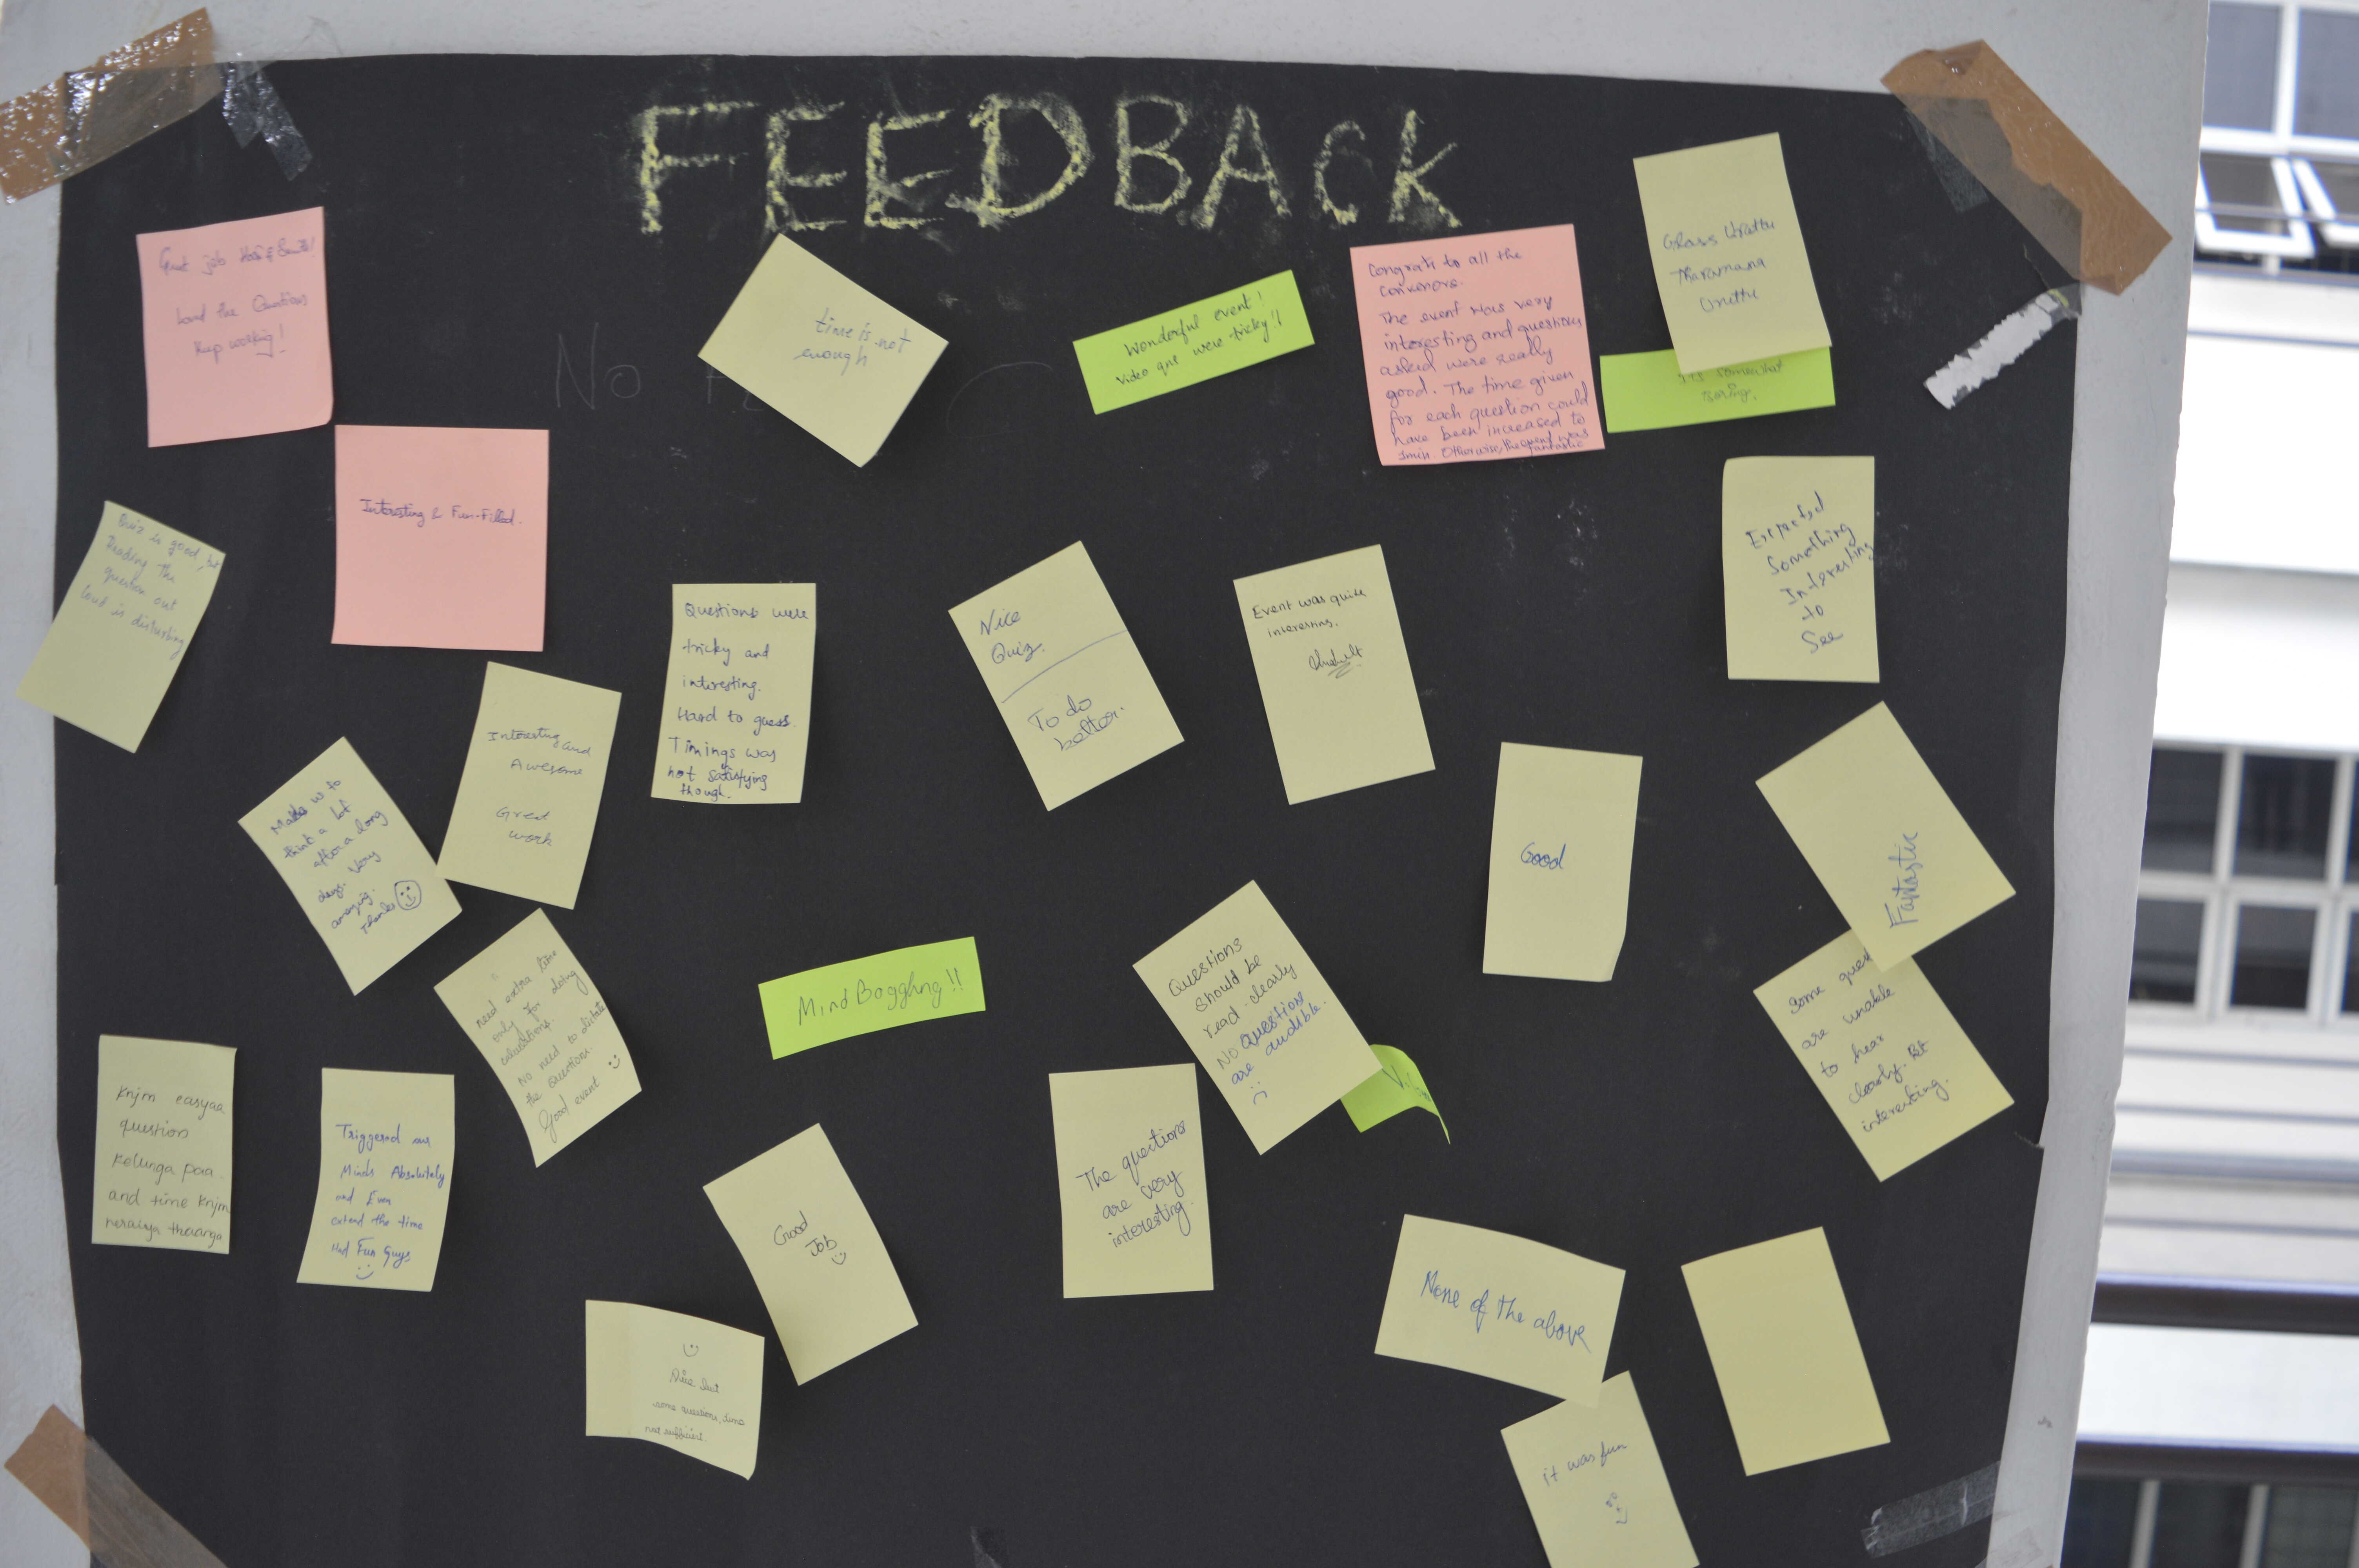 FEEDBACK
Great job
Loved the Questions
Keep working!
time is not
enough
Wonderful event!
Video que were tricky!!
Congrats to all the
convenors.
The event was very
interesting and questions
asked were really
good. The time given
for each question could
have been increased to
1min. Otherwise, the event was
fantastic
Grass Urattu
Tharamana
Urattu
It's somewhat
Boring.
No
Interesting & Fun-Filled.
Quiz is good, but
Reading the
question out
loud is disturbing
Questions were
tricky and
interesting.
Hard to guess.
Timings was
not satisfying
though.
Nice
Quiz.
To do
better.
Event was quite
interesting.
Expected
Something
Interesting
to
See
Interesting and
Awesome
Great
work
Makes us to
think a lot
after a long
days. Very
amazing.
Thanks
Good
Fantastic
need extra time
only for doing
calculations.
No need to dictate
the questions.
Good event
Mind Boggling!!
Questions
should be
read clearly
No questions
are audible.
some ques
are unable
to hear
clearly. Bt
interesting.
Knjm easyaa
question
Kelunga paa.
and time Knjm
neraiya thaanga
Triggered our
Minds Absolutely
and Even
extend the time
Had Fun Guys
Good
Job
The questions
are very
interesting.
None of the above
Nice but
some questions, time
not sufficient.
it was fun